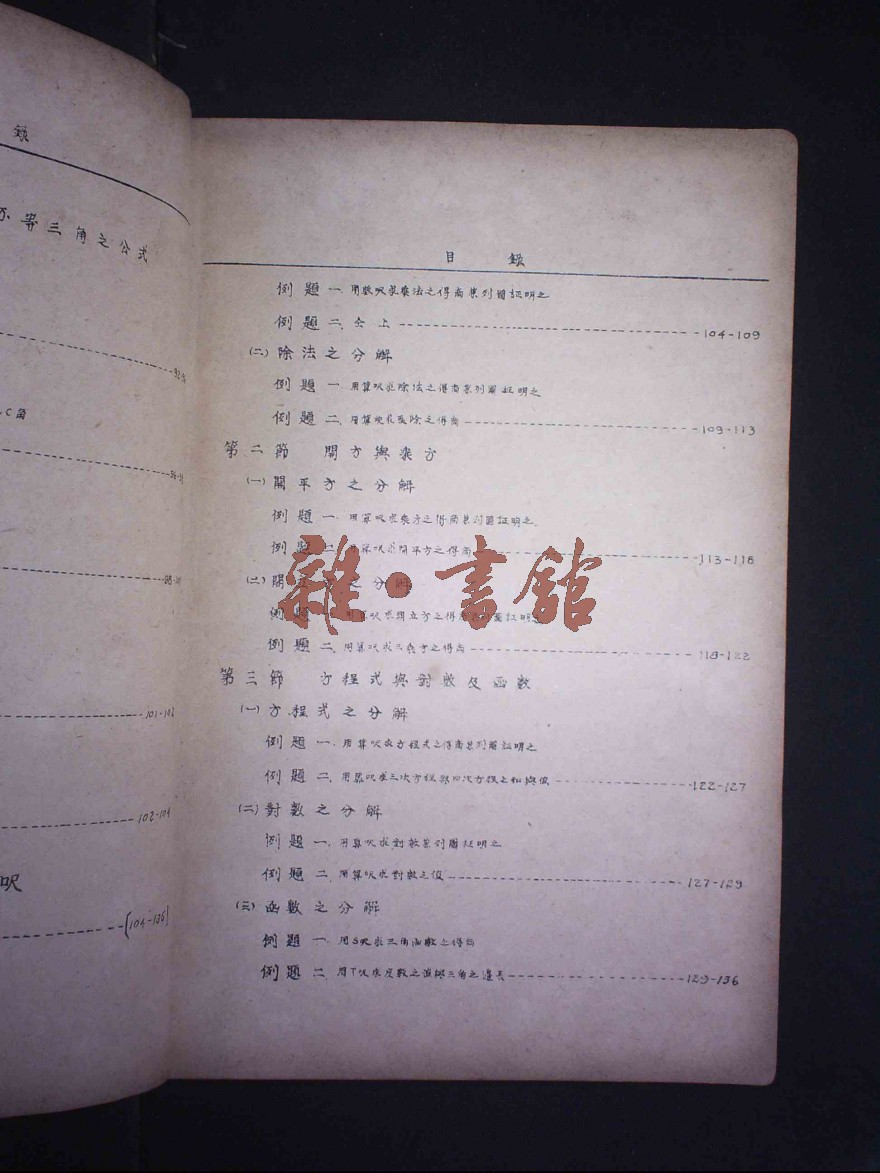 錄
不等三角之公式
C角
101-102
102-104
呎
(104-136)
目 錄
例題一.用數呎求乘法之得商並列圖証明之
例題二.仝上 104-109
(二)除法之分解
例題一.用算呎求除法之得商並列圖証明之
例題二.用算呎求乘除之得商 109-113
第二節 開方與乘方
(一)開平方之分解
例題一.用算呎求乘方之得商並列圖証明之
例題二.用算呎求開平方之得商 113-118
(二)開立方之分解
例題一.用算呎求開立方之得商並列圖証明之
例題二.用算呎求三乘方之得商 118-122
雜·書館
第三節 方程式與對數及函數
(一)方程式之分解
例題一.用算呎求方程式之得商並列圖証明之
例題二.用算呎求三次方程與四次方程之和與值 122-127
(二)對數之分解
例題一.用算呎求對数並列圖証明之
例題二.用算呎求對数之值 127-129
(三)函數之分解
例題一.用S呎求三角函數之得商
例題二.用T呎求度数之值與三角之邊長 129-136